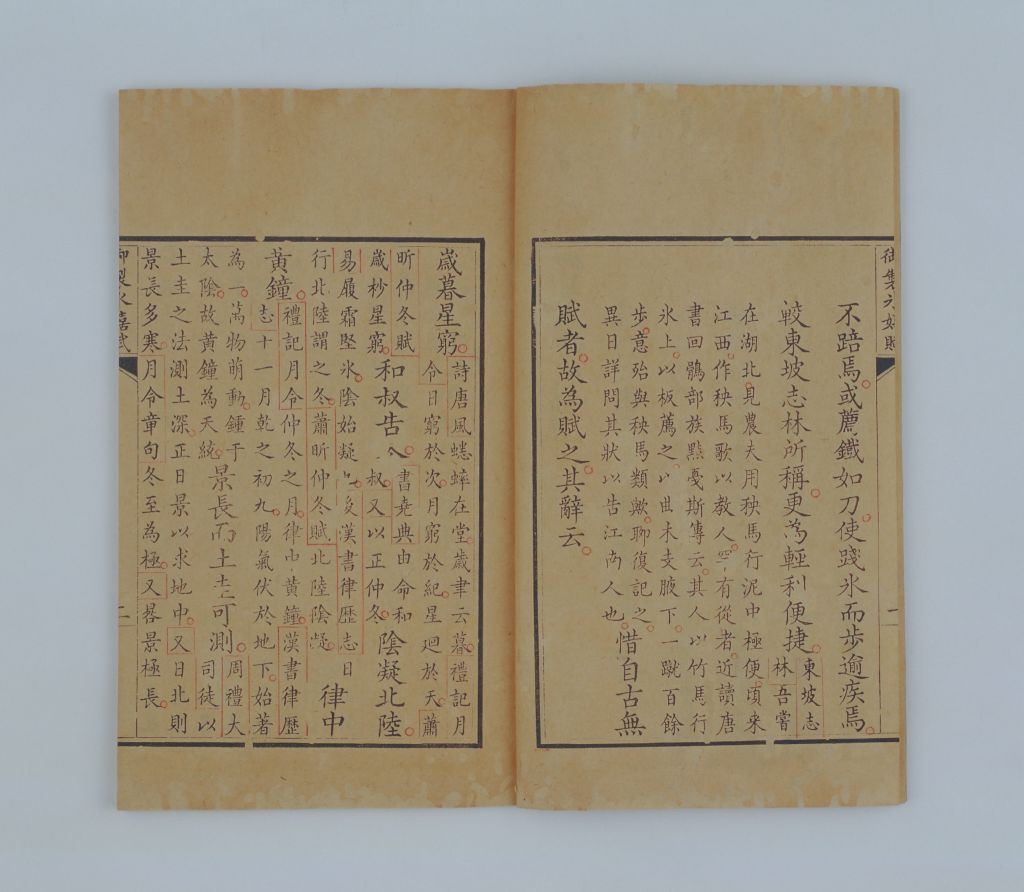 不踣焉或薦鐵如刀使踐氷而步逾疾焉
較東坡志林所稱更為輕利便捷
東坡志
林吾嘗
在湖北見農夫用秧馬行泥中極便頃來
江西作秧馬歌以教人罕有從者近讀唐
書回鶻部族黠戛斯傳云其人以竹馬行
氷上以板薦之以曲木支腋下一蹴百餘
步意殆與秧馬類歟聊復記之
異日詳問其狀以告江南人也
惜自古無
賦者故為賦之其辭云
一
歲暮星窮
詩唐風蟋蟀在堂歲聿云暮禮記月
令日窮於次月窮於紀星迴於天蕭
昕仲冬賦
歲杪星窮
和叔告
書堯典申命和
叔又以正仲冬
陰凝北陸
易履霜堅氷陰始凝也後漢書律歷志日
行北陸謂之冬蕭昕仲冬賦北陸陰凝
律中
黃鐘
禮記月令仲冬之月律中黃鐘漢書律歷
志十一月乾之初九陽氣伏於地下始著
為一萬物萌動鍾于
太陰故黃鐘為天統
景長而土圭可測
周禮大
司徒以
土圭之法測土深正日景以求地中又日北則
景長多寒月令章句冬至為極又晷景極長
二